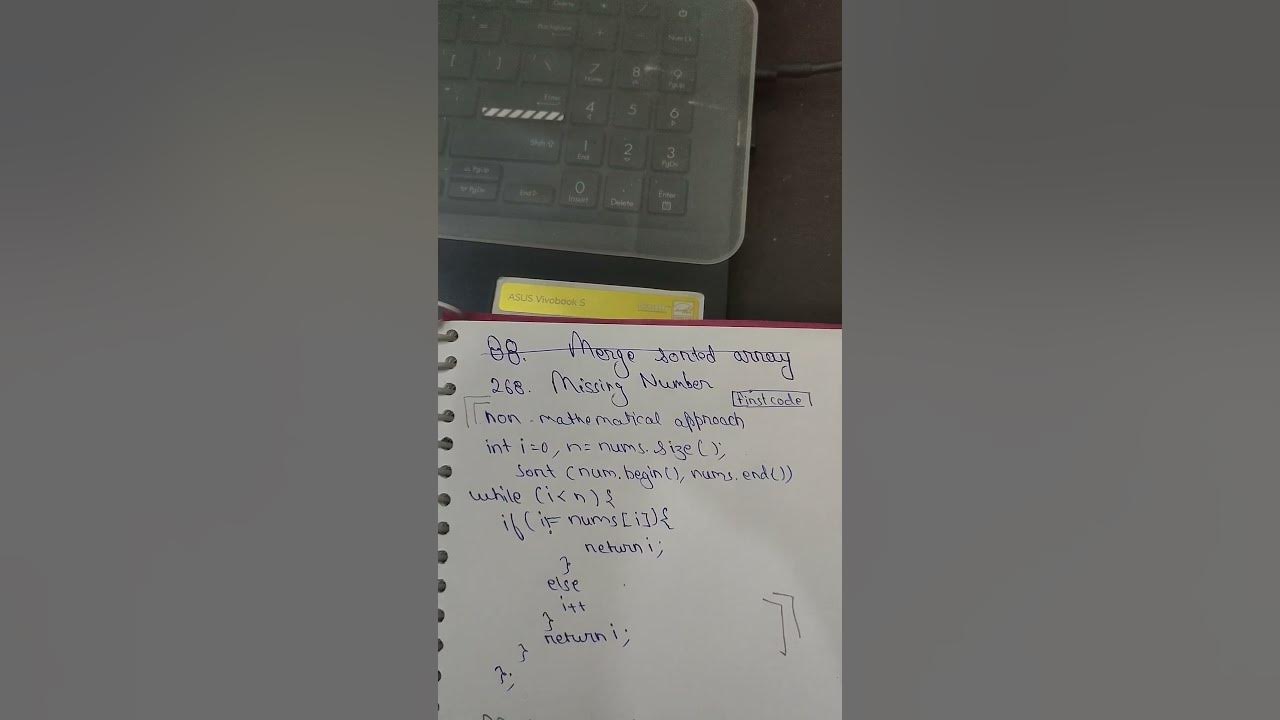 Delete
Backspace
+
-
Num Lk
[
]
\
7
Home
8
9
PgUp
Enter
4
5
6
Shift
1
End
2
3
PgDn
PgUp
PgDn
End
0
Insert
.
Delete
Enter
ASUS Vivobook S
88. Merge sorted array
268. Missing Number
First code
non-mathematical approach
int i=0, n= nums.size();
sort (num.begin(), nums.end())
while (i<n){
if(i!= nums[i]){
return i;
}
else
i++
}
return i;
}
};